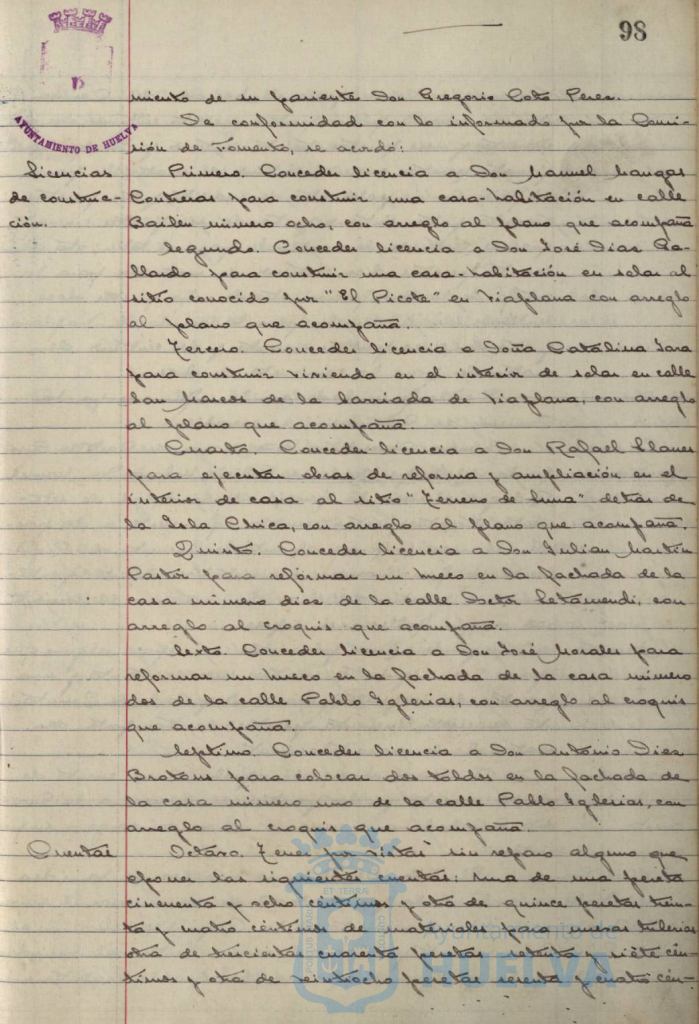 98
AYUNTAMIENTO DE HUELVA
miento de su pariente Don Gregorio Coto Perez.
De conformidad con lo informado por la Comi-
sión de Fomento, se acordó:
Licencias
de construc-
ción.
Primero. Conceder licencia a Don Manuel Mangas
Contreras para construir una casa-habitación en calle
Bailén número ocho, con arreglo al plano que acompaña
Segundo. Conceder licencia a Don José Diaz Ga-
llardo para construir una casa-habitación en solar al
sitio conocido por "El Picote" en Viaplana con arreglo
al plano que acompaña.
Tercero. Conceder licencia a Doña Catalina Jara
para construir vivienda en el interior de solar en calle
San Marcos de la barriada de Viaplana, con arreglo
al plano que acompaña.
Cuarto. Conceder licencia a Don Rafael Llanes
para ejecutar obras de reforma y ampliación en el
interior de casa al sitio "Terreno de Luna" detrás de
la Isla Chica, con arreglo al plano que acompaña.
Quinto. Conceder licencia a Don Julian Martín
Pastor para reformar un hueco en la fachada de la
casa número diez de la calle Doctor Letamendi, con
arreglo al croquis que acompaña.
Sexto. Conceder licencia a Don José Morales para
reformar un hueco en la fachada de la casa número
dos de la calle Pablo Iglesias, con arreglo al croquis
que acompaña.
Septimo. Conceder licencia a Don Antonio Diaz
para colocar dos toldos en la fachada de
la casa número uno de la calle Pablo Iglesias, con
arreglo al croquis que acompaña.
Cuentas
Octavo. Tener por vistas sin reparo alguno que
oponer las siguientes cuentas: una de una peseta
cincuenta y ocho céntimos y otra de quince pesetas trein-
ta y cuatro céntimos de materiales para nuevas tuberias
otra de trescientas cuarenta pesetas setenta y siete cén-
timos y otra de veintiocho pesetas sesenta y cuatro cén-
Ayuntamiento de
HUELVA